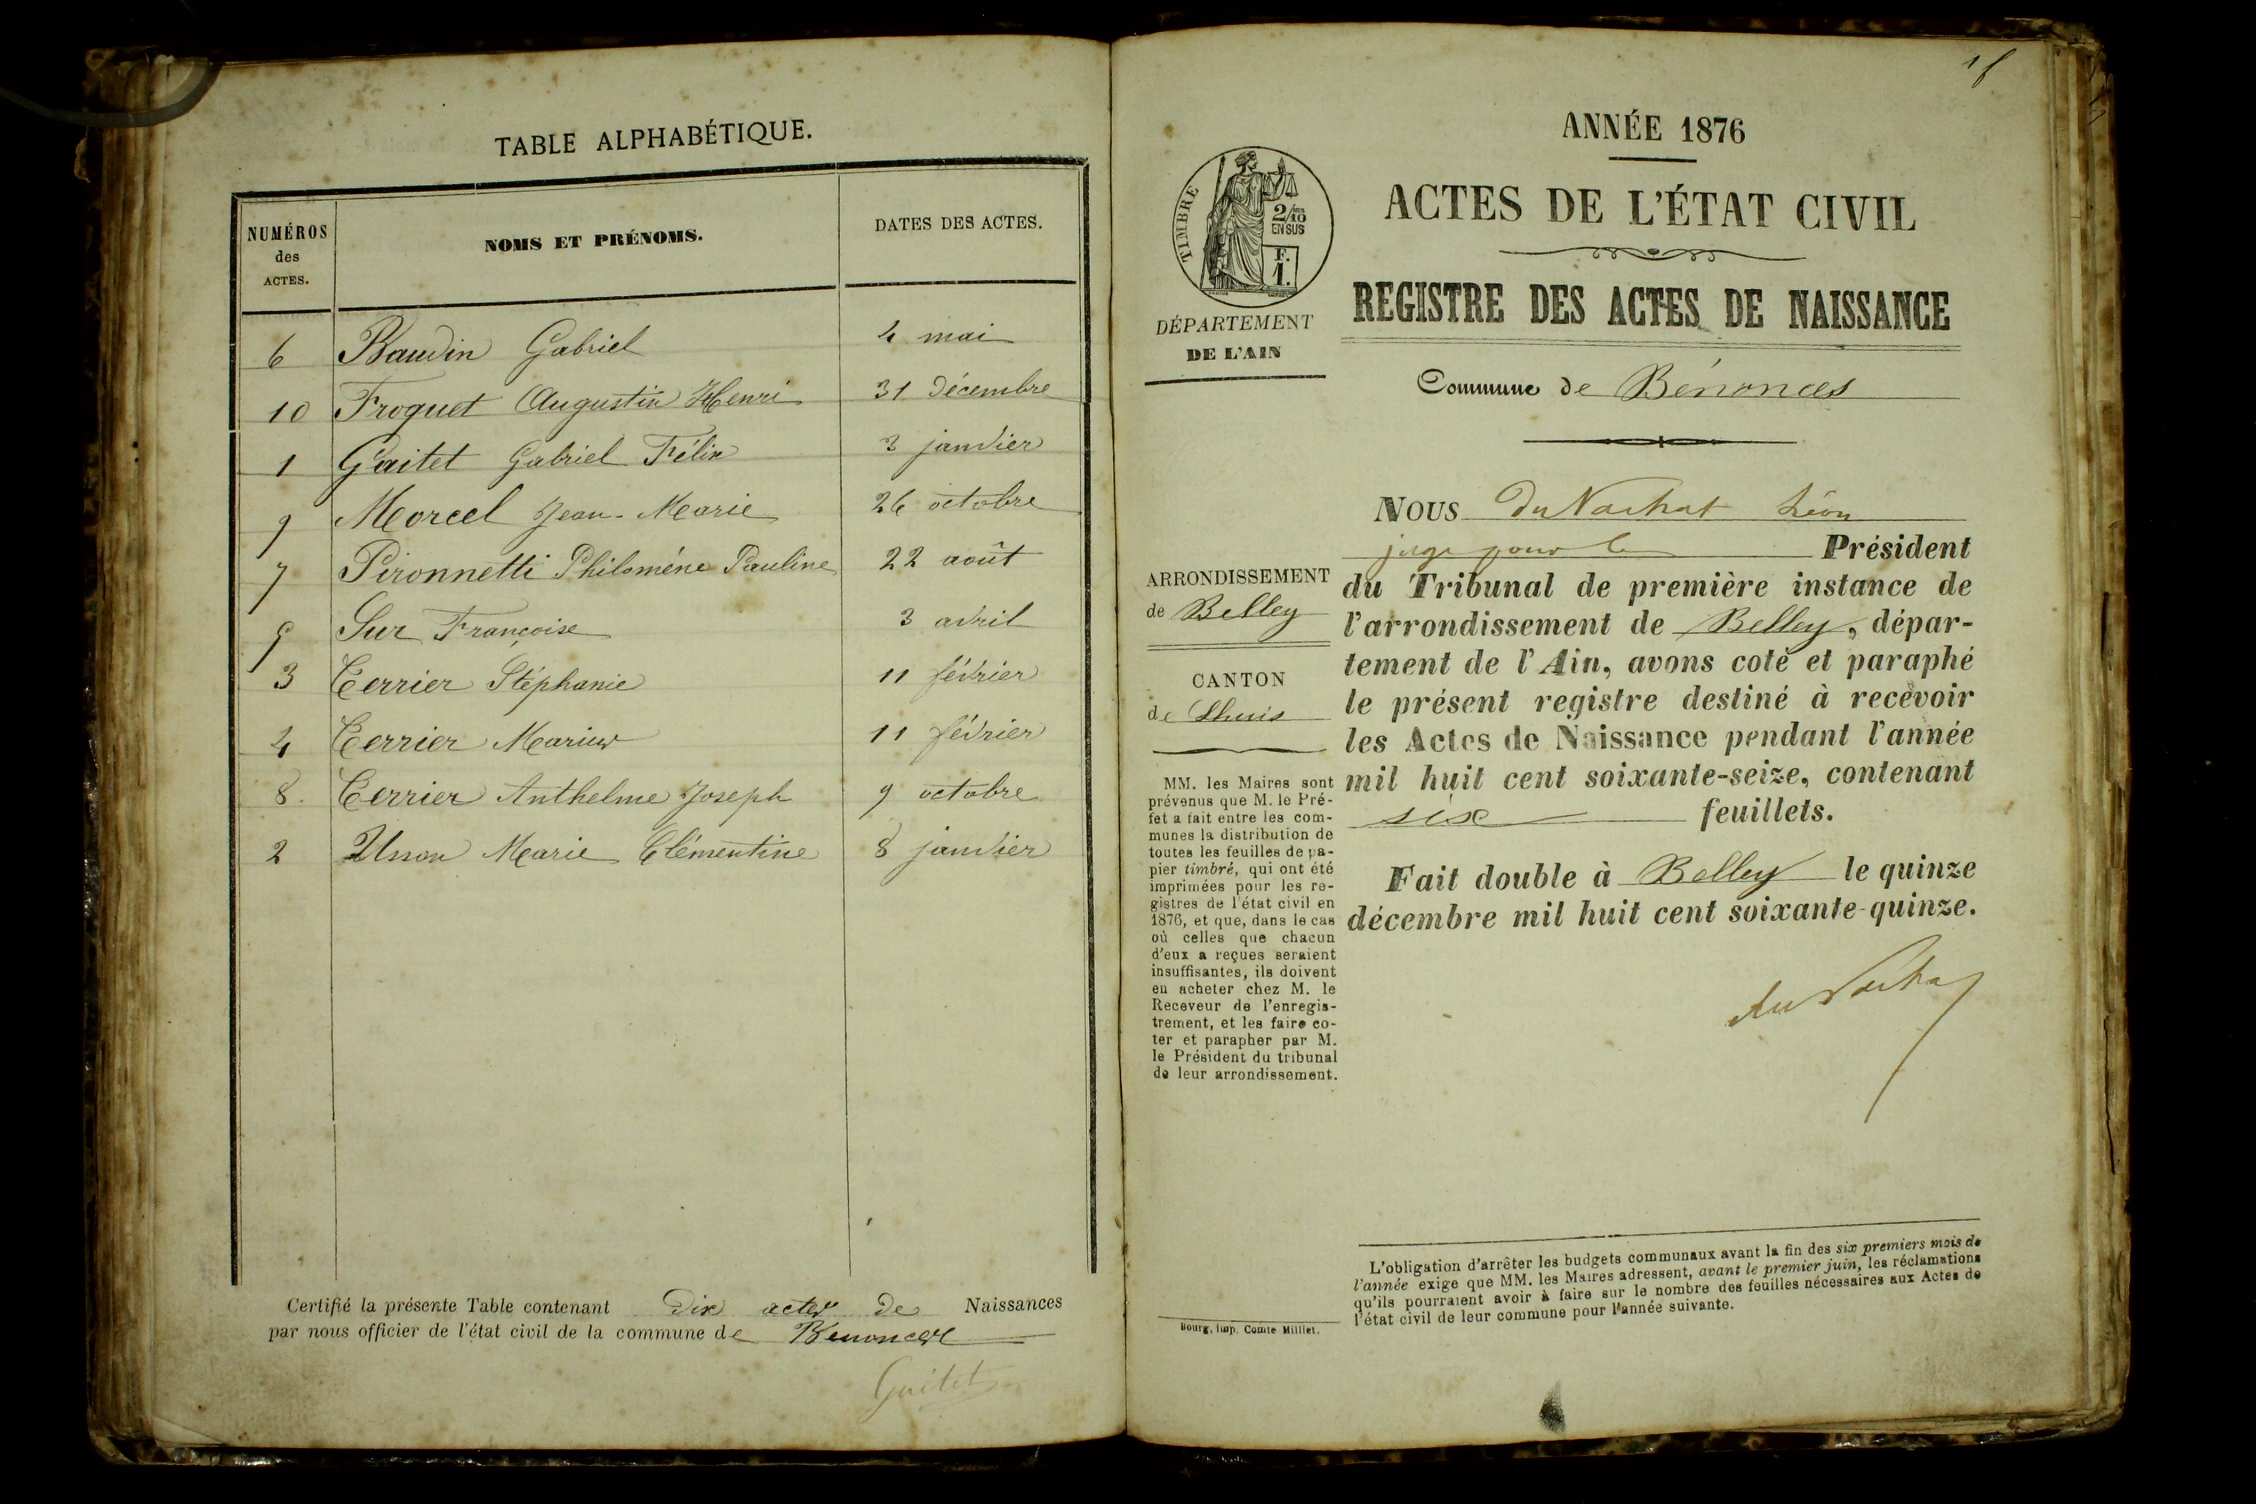 TABLE ALPHABÉTIQUE.
NUMÉROS des ACTES. NOMS ET PRÉNOMS. DATES DES ACTES.
6 Baudin Gabriel 4 mai
10 Froquet Augustin Henri 31 décembre
1 Gaitet Gabriel Félix 3 janvier
9 Morcel Jean-Marie 26 octobre
7 Pironnetti Philoméne Pauline 22 août
5 Sur Françoise 3 avril
3 Terrier Stéphanie 11 février
4 Terrier Marius 11 février
8 Terrier Anthelme Joseph 9 octobre
2 Usson Marie Clémentine 8 janvier
Certifié la présente Table contenant dix actes de Naissances
par nous officier de l'état civil de la commune de Benonces
Gaitet
1f
ANNÉE 1876
ACTES DE L'ÉTAT CIVIL
REGISTRE DES ACTES DE NAISSANCE
TIMBRE
2/10
EN SUS
F.
1.
DÉPARTEMENT
DE L'AIN
Commune de Bénonces
ARRONDISSEMENT
de Belley
CANTON
de Lhuis
MM. les Maires sont
prévenus que M. le Pré-
fet a fait entre les com-
munes la distribution de
toutes les feuilles de pa-
pier timbré, qui ont été
imprimées pour les re-
gistres de l'état civil en
1876, et que, dans le cas
où celles que chacun
d'eux a reçues seraient
insuffisantes, ils doivent
en acheter chez M. le
Receveur de l'enregis-
trement, et les faire co-
ter et parapher par M.
le Président du tribunal
de leur arrondissement.
Bourg, imp. Comte Milliet.
NOUS du Nachat Léon
juge pour le Président
du Tribunal de première instance de
l'arrondissement de Belley, dépar-
tement de l'Ain, avons coté et paraphé
le présent registre destiné à recevoir
les Actes de Naissance pendant l'année
mil huit cent soixante-seize, contenant
six feuillets.
Fait double à Belley le quinze
décembre mil huit cent soixante-quinze.
du Nachat
L'obligation d'arrêter les budgets communaux avant la fin des six premiers mois de
l'année exige que MM. les Maires adressent, avant le premier juin, les réclamations
qu'ils pourraient avoir à faire sur le nombre des feuilles nécessaires aux Actes de
l'état civil de leur commune pour l'année suivante.